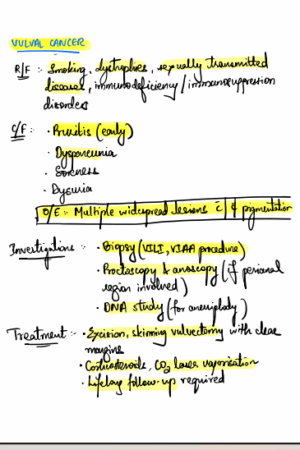 VULVAL CANCER
R/F :- Smoking, dystrophies, sexually transmitted
diseases, immunodeficiency / immunosuppression
disorders
C/F :- • Pruritis (early)
• Dyspareunia
• Soreness
• Dysuria
O/E :- Multiple widespread lesions c̄ ↓ pigmentation
Investigations :- • Biopsy (VILI, VIAA procedure)
• Proctoscopy & anoscopy (if perianal
region involved)
• DNA study (for aneuploidy)
Treatment :- • Excision, skinning vulvectomy with clear
margins
• Corticosteroids, CO2 laser vaporisation
• Lifelong follow-up required